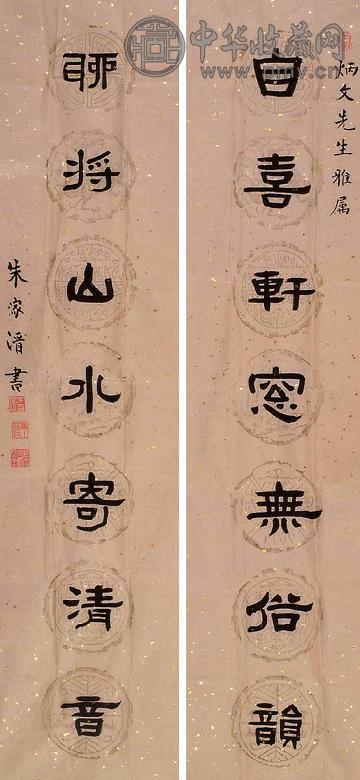 炳文先生雅属
自喜軒窓無俗韻
聊将山水寄清音
朱家溍書
中华收藏网
www.pmv.cn